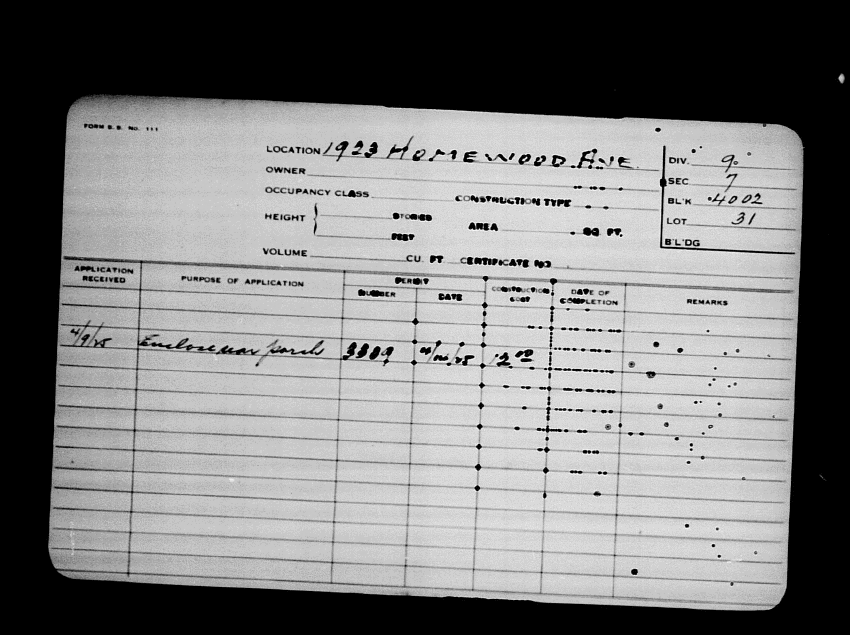 FORM B. B. No. 111
LOCATION 1923 HOMEWOOD AVE.
DIV. 9.
OWNER
SEC 7
OCCUPANCY CLASS CONSTRUCTION TYPE
BL'K 4002
HEIGHT STORIES AREA SQ FT.
LOT 31
FEET
B'L'DG
VOLUME CU. FT CERTIFICATE NO
APPLICATION RECEIVED PURPOSE OF APPLICATION PERMIT NUMBER DATE CONSTRUCTION COST DATE OF COMPLETION REMARKS
4/9/25 Enclose rear porch 3389 12 00